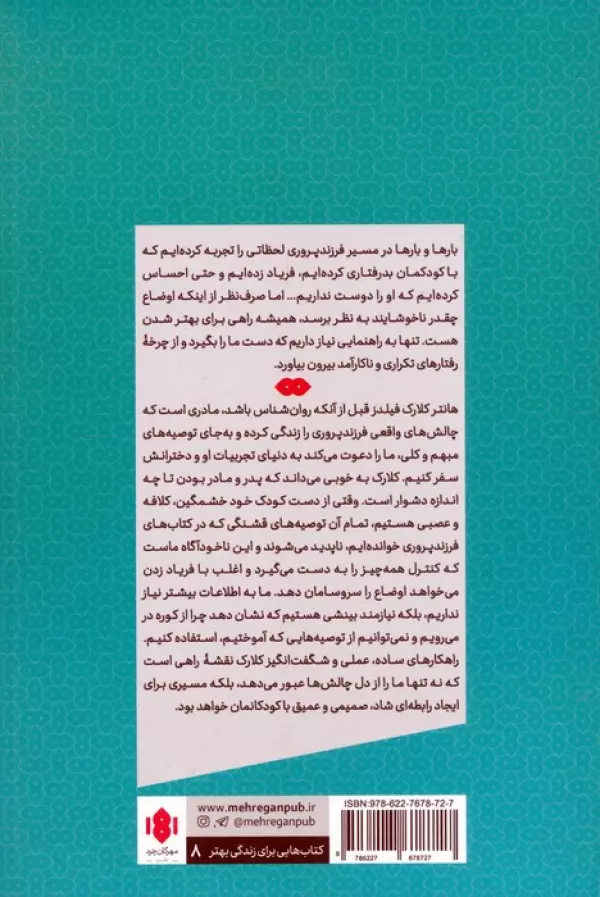 بارها و بارها در مسیر فرزندپروری لحظاتی را تجربه کرده‌ایم که
با کودکمان بدرفتاری کرده‌ایم، فریاد زده‌ایم و حتی احساس
کرده‌ایم که او را دوست نداریم... اما صرف‌نظر از اینکه اوضاع
چقدر ناخوشایند به نظر برسد، همیشه راهی برای بهتر شدن
هست. تنها به راهنمایی نیاز داریم که دست ما را بگیرد و از چرخۀ
رفتارهای تکراری و ناکارآمد بیرون بیاورد.
هانتر کلارک فیلدز قبل از آنکه روان‌شناس باشد، مادری است که
چالش‌های واقعی فرزندپروری را زندگی کرده و به‌جای توصیه‌های
مبهم و کلی، ما را دعوت می‌کند به دنیای تجربیات او و دخترانش
سفر کنیم. کلارک به خوبی می‌داند که پدر و مادر بودن تا چه
اندازه دشوار است. وقتی از دست کودک خود خشمگین، کلافه
و عصبی هستیم، تمام آن توصیه‌های قشنگی که در کتاب‌های
فرزندپروری خوانده‌ایم، ناپدید می‌شوند و این ناخودآگاه ماست
که کنترل همه‌چیز را به دست می‌گیرد و اغلب با فریاد زدن
می‌خواهد اوضاع را سروسامان دهد. ما به اطلاعات بیشتر نیاز
نداریم، بلکه نیازمند بینشی هستیم که نشان دهد چرا از کوره در
می‌رویم و نمی‌توانیم از توصیه‌هایی که آموختیم، استفاده کنیم.
راهکارهای ساده، عملی و شگفت‌انگیز کلارک نقشۀ راهی است
که نه تنها ما را از دل چالش‌ها عبور می‌دهد، بلکه مسیری برای
ایجاد رابطه‌ای شاد، صمیمی و عمیق با کودکانمان خواهد بود.
www.mehreganpub.ir
@mehreganpub
کتاب‌هایی برای زندگی بهتر | ۸
مهرگان خرد
ISBN:978-622-7678-72-7
9 786227 678727